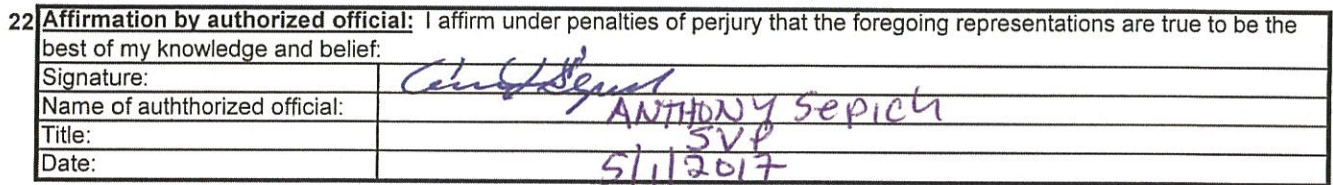 22 Affirmation by authorized official: I affirm under penalties of perjury that the foregoing representations are true to be the
best of my knowledge and belief:
Signature:
Name of auththorized official: ANTHONY SepicH
Title: SVP
Date: 5/1/2017